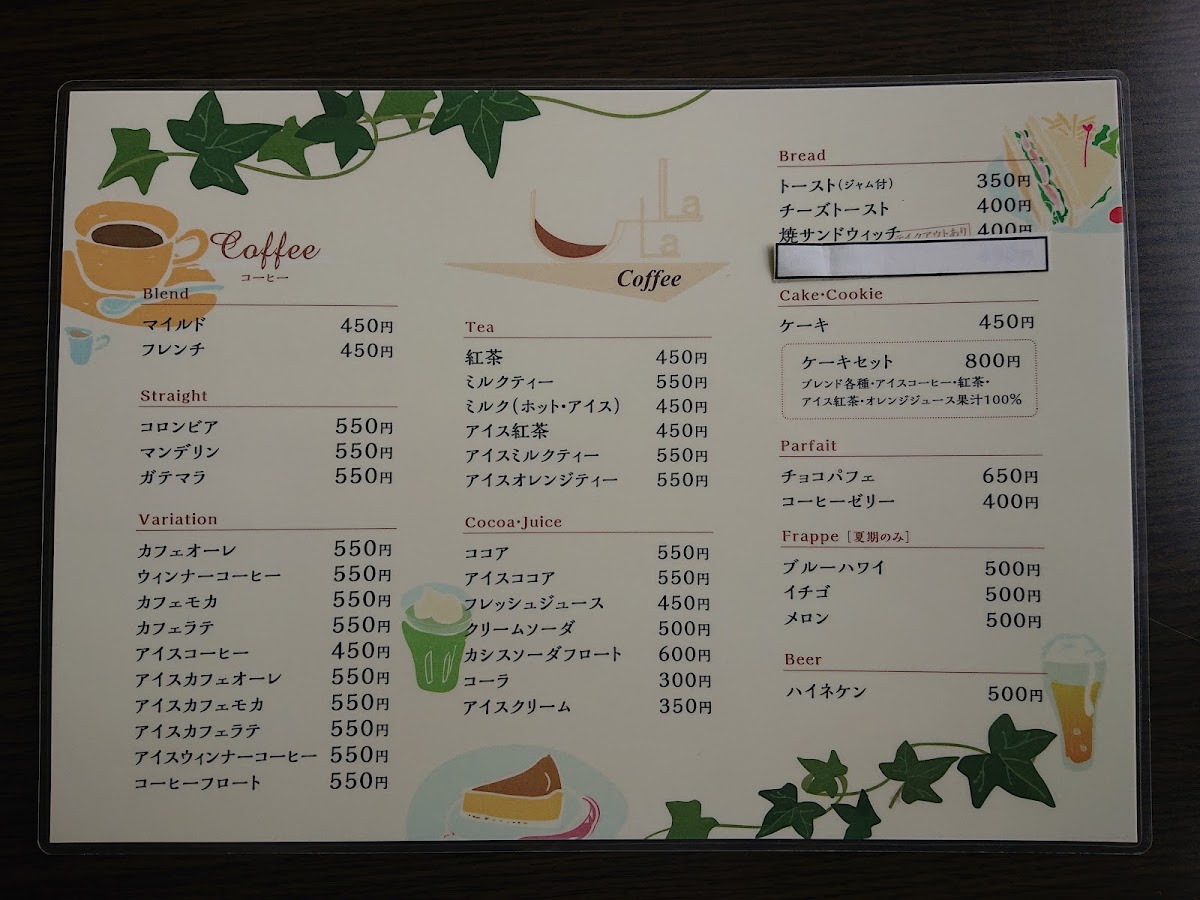 Coffee
コーヒー
Blend
マイルド 450円
フレンチ 450円
Straight
コロンビア 550円
マンデリン 550円
ガテマラ 550円
Variation
カフェオーレ 550円
ウィンナーコーヒー 550円
カフェモカ 550円
カフェラテ 550円
アイスコーヒー 450円
アイスカフェオーレ 550円
アイスカフェモカ 550円
アイスカフェラテ 550円
アイスウィンナーコーヒー 550円
コーヒーフロート 550円
La
La
Coffee
Tea
紅茶 450円
ミルクティー 550円
ミルク(ホット・アイス) 450円
アイス紅茶 450円
アイスミルクティー 550円
アイスオレンジティー 550円
Cocoa・Juice
ココア 550円
アイスココア 550円
フレッシュジュース 450円
クリームソーダ 500円
カシスソーダフロート 600円
コーラ 300円
アイスクリーム 350円
Bread
トースト(ジャム付) 350円
チーズトースト 400円
焼サンドウィッチ テイクアウトあり 400円
Cake・Cookie
ケーキ 450円
ケーキセット 800円
ブレンド各種・アイスコーヒー・紅茶・
アイス紅茶・オレンジジュース果汁100%
Parfait
チョコパフェ 650円
コーヒーゼリー 400円
Frappe [夏期のみ]
ブルーハワイ 500円
イチゴ 500円
メロン 500円
Beer
ハイネケン 500円